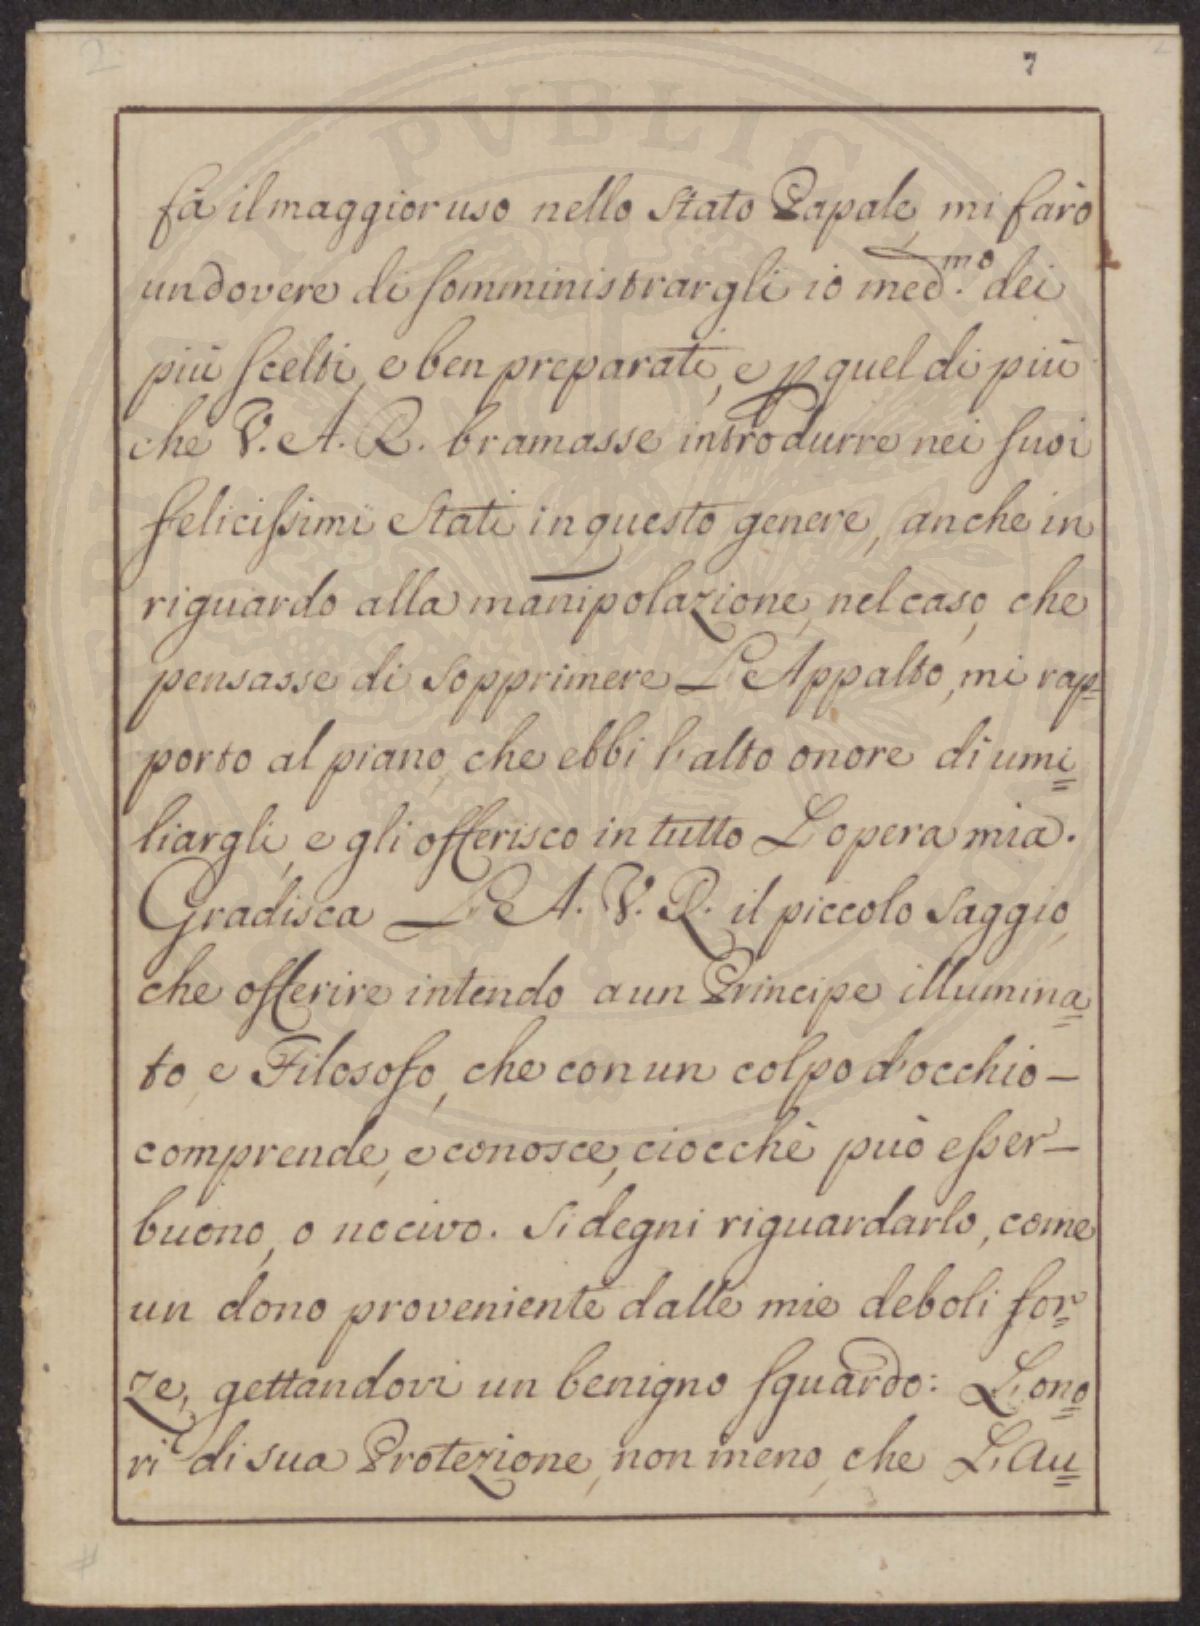 2
7
fà il maggior uso nello Stato Papale, mi farò
un dovere di somministrargli io med.mo dei
più scelti, e ben preparati, e p quel di più
che V. A. R. bramasse introdurre nei suoi
felicissimi Stati in questo genere, anche in
riguardo alla manipolazione, nel caso, che
pensasse di sopprimere L'Appalto, mi rap=
porto al piano, che ebbi l'alto onore di umi=
liargli, e gli offerisco in tutto L'opera mia.
Gradisca L'A. V. R. il piccolo saggio,
che offerire intendo a un Principe illumina=
to, e Filosofo, che con un colpo d'occhio—
comprende, e conosce, ciocchè può esser—
buono, o nocivo. Si degni riguardarlo, come
un dono proveniente dalle mie deboli for=
ze, gettandovi un benigno sguardo: L'ono=
ri di sua Protezione, non meno, che L'Au=